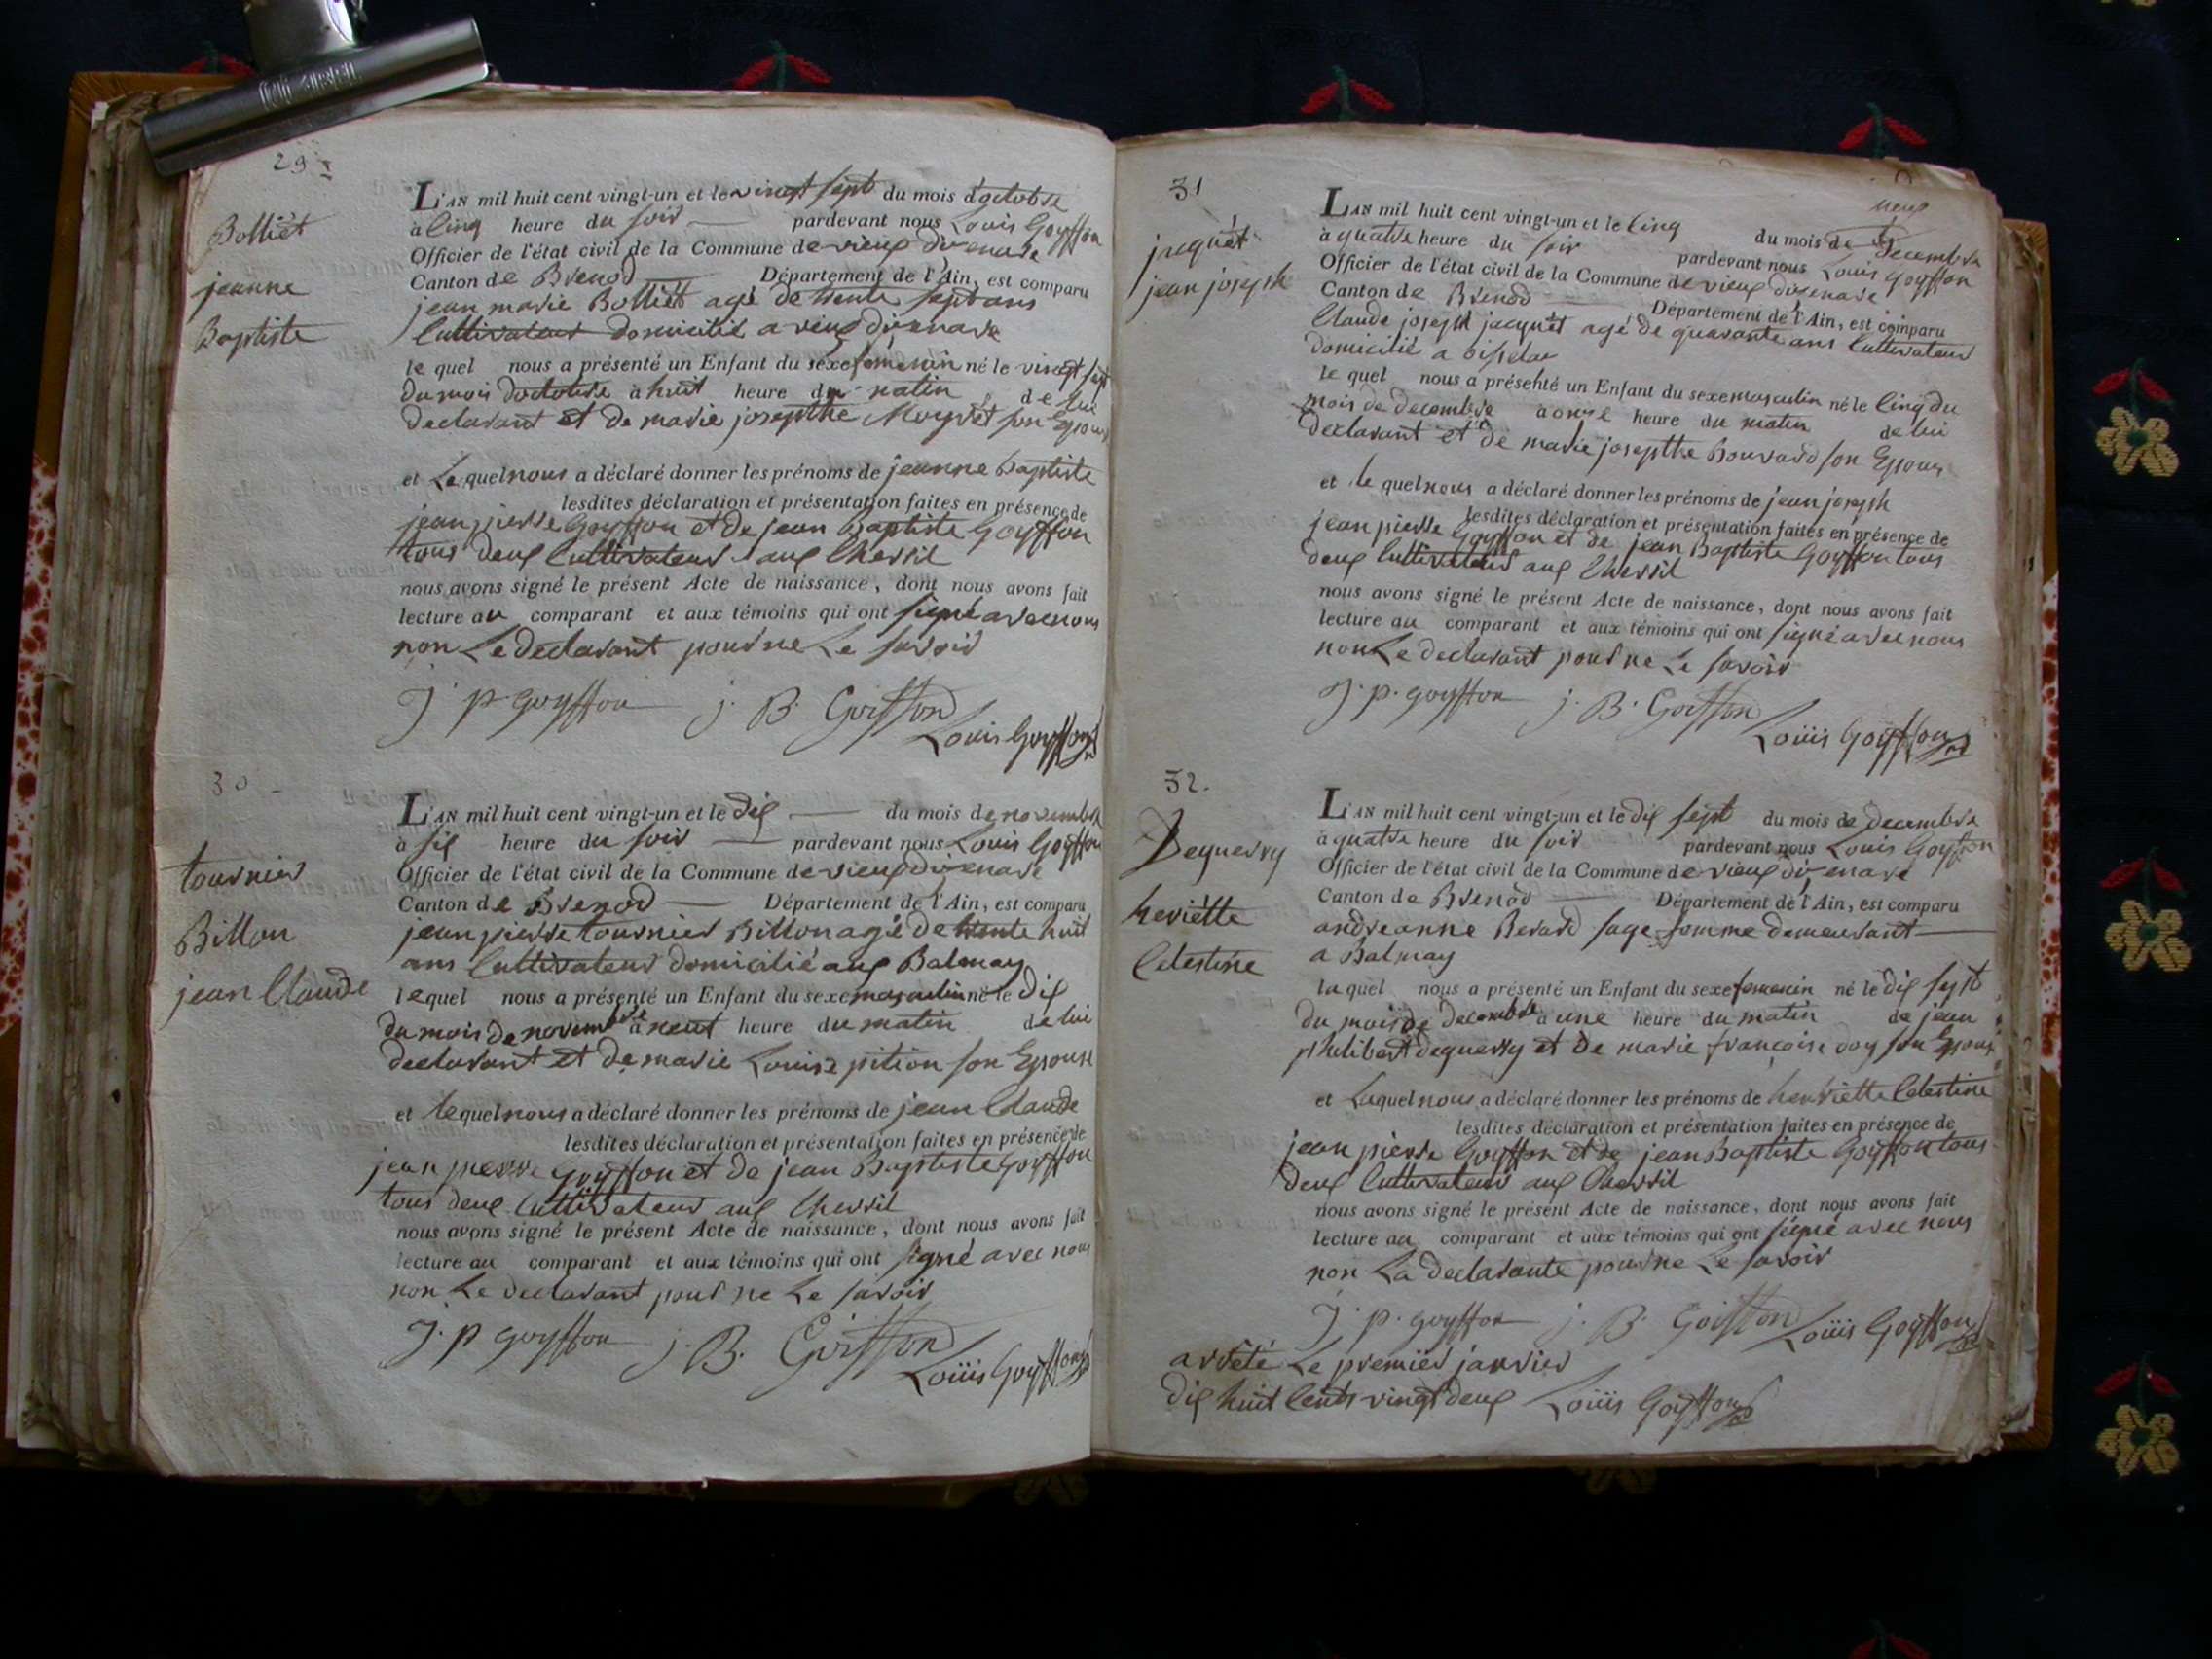 29
Bolliét
jeanne
Baptiste
L'AN mil huit cent vingt-un et le vingt sept du mois d'octobre
à cinq heure du soir pardevant nous Louis Goyffon
Officier de l'état civil de la Commune de vieux d'izenave
Canton de Brenod Département de l'Ain, est comparu
jean marie Bolliét agé de trente sept ans
Cultivateur domicilié a vieux d'izenave
le quel nous a présenté un Enfant du sexe femenin né le vingt sept
du mois d'octobre à huit heure du matin de lui
declarant et de marie josepthe Moyrét son Epouse
et Le quel nous a déclaré donner les prénoms de jeanne baptiste
lesdites déclaration et présentation faites en présence de
jean pierre Goyffon et de jean baptiste Goyffon
tous deux Cultivateur aux Chevril
nous avons signé le présent Acte de naissance, dont nous avons fait
lecture au comparant et aux témoins qui ont signé avec nous
non Le declarant pour ne Le savoir
J. p goyffon j. B. Goiffon
Louis Goyffon
30
tournier
Billon
jean Claude
L'AN mil huit cent vingt-un et le dix du mois de novembre
à six heure du soir pardevant nous Louis Goyffon
Officier de l'état civil de la Commune de vieux d'izenave
Canton de Brenod Département de l'Ain, est comparu
jean pierre tournier Billon agé de trente huit
ans Cultivateur domicilié aux Balmay
lequel nous a présenté un Enfant du sexe masculin né le dix
du mois de novembre à neuf heure du matin de lui
declarant et de marie Louise pition son Epouse
et le quel nous a déclaré donner les prénoms de jean Claude
lesdites déclaration et présentation faites en présence de
jean pierre Goyffon et de jean Baptiste Goyffon
tous deux Cultivateur aux Chevril
nous avons signé le présent Acte de naissance, dont nous avons fait
lecture au comparant et aux témoins qui ont signé avec nous
non Le declarant pour ne Le savoir
J. p goyffon j. B. Goiffon
Loüis Goyffon
31
jacquét
jean joseph
neuf
L'AN mil huit cent vingt-un et le cinq du mois de decembre
à quatre heure du soir pardevant nous Louis Goyffon
Officier de l'état civil de la Commune de vieux d'izenave
Canton de Brenod Département de l'Ain, est comparu
Claude joseph jacquét agé de quarante ans Cultivateur
domicilié a oisselae
le quel nous a présenté un Enfant du sexe masculin né le cinq du
mois de decembre à onze heure du matin de lui
declarant et de marie josepthe Bouvard son Epouse
et le quel nous a déclaré donner les prénoms de jean joseph
lesdites déclaration et présentation faites en présence de
jean pierre Goyffon et de jean Baptiste Goyffon tous
deux Cultivateur aux Chevril
nous avons signé le présent Acte de naissance, dont nous avons fait
lecture au comparant et aux témoins qui ont signé avec nous
non Le declarant pour ne Le savoir
J. p. goyffon j. B. Goiffon
Loüis Goyffon
32.
Dequerry
heriétte
Celestine
L'AN mil huit cent vingt-un et le dix sept du mois de decembre
à quatre heure du soir pardevant nous Louis Goyffon
Officier de l'état civil de la Commune de vieux d'izenave
Canton de Brenod Département de l'Ain, est comparu
andreanne Berard sage femme demeurant
a Balmay
la quel nous a présenté un Enfant du sexe femenin né le dix sept
du mois de decembre à une heure du matin de jean
philibert dequerry et de marie françoise doy son Epouse
et Laquel nous a déclaré donner les prénoms de henriette Celestine
lesdites déclaration et présentation faites en présence de
jean pierre Goyffon et de jean Baptiste Goyffon tous
deux Cultivateur aux Chevril
nous avons signé le présent Acte de naissance, dont nous avons fait
lecture au comparant et aux témoins qui ont signé avec nous
non La declarante pour ne Le savoir
J. p. goyffon j. B. Goiffon Loüis Goyffon
arrété Le premier janvier
dix huit Cents vingt deux Loüis Goyffon